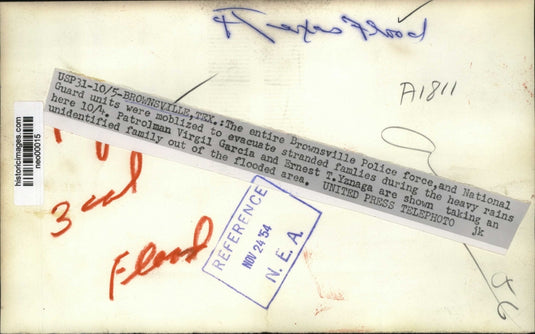 A1811
USP31-10/5-BROWNSVILLE,TEX.:The entire Brownsville Police force,and National
Guard units were moblized to evacuate stranded famlies during the heavy rains
here 10/4. Patrolman Virgil Garcia and Ernest T.Yznaga are shown taking an
unidentified family out of the flooded area. UNITED PRESS TELEPHOTO jk
historicimages.com
neo00015
3 col
Flood
REFERENCE
NOV 24 '54
N. E. A.